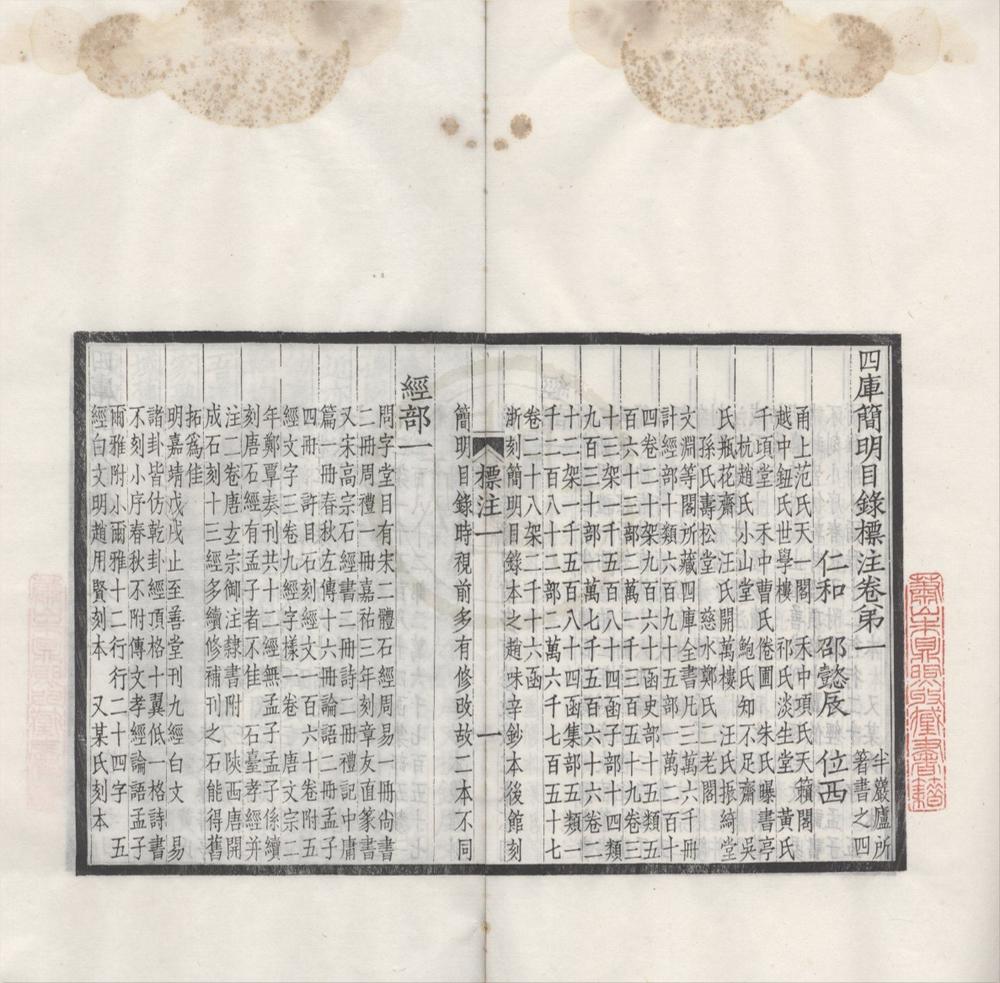 四庫簡明目錄標注卷第一
半巖廬所
著書之四
仁和 邵懿辰 位西
甬上范氏天一閣 禾中項氏天籟閣
越中鈕氏世學樓 祁氏淡生堂 黃氏
千頃堂 禾中曹氏倦圃 朱氏曝書亭
杭趙氏小山堂 鮑氏知不足齋 吳
氏瓶花齋 汪氏開萬樓 汪氏振綺堂
孫氏壽松堂 慈水鄭氏二老閣
文淵等閣所藏四庫全書凡三萬六千冊
計經部二十類六百九十五部一萬二百十
四卷二十架九百六十函史部十五類五
百六十三部二萬一千三百五十九卷三
十三架一千五百八十四函子部十四類
九百三十部一萬七千五百六十六卷二
十二架一千五百八十四函集部五類一
千二百八十二部二萬六千七百五十七
卷二十八架二千十六函
浙刻簡明目錄本之趙味辛鈔本後館刻
標注一
一
簡明目錄時視前多有修改故二本不同
經部一
問字堂目有宋二體石經周易一冊尚書
二冊周禮一冊嘉祐三年刻章友直篆書
又宋高宗石經書二冊詩二冊禮記中庸
篇一冊春秋左傳十六冊論語二冊孟子
四冊 許目石刻經文一百六十卷附五
經文字三卷九經字樣一卷 唐文宗二
年鄭覃奏刊共十二經無孟子孟子係續
刻唐石經有孟子者不佳 石臺孝經并
注二卷唐玄宗御注隸書附 陝西唐開
成石刻十三經多續修補刊之石能得舊
拓爲佳
明嘉靖戊戌止至善堂刊九經白文 易
諸卦皆仿乾卦經頂格十翼低一格詩書
不刻小序春秋不附傳文孝經論語孟子
爾雅附小爾雅十二行行二十四字 五
經白文明趙用賢刻本 又某氏刻本